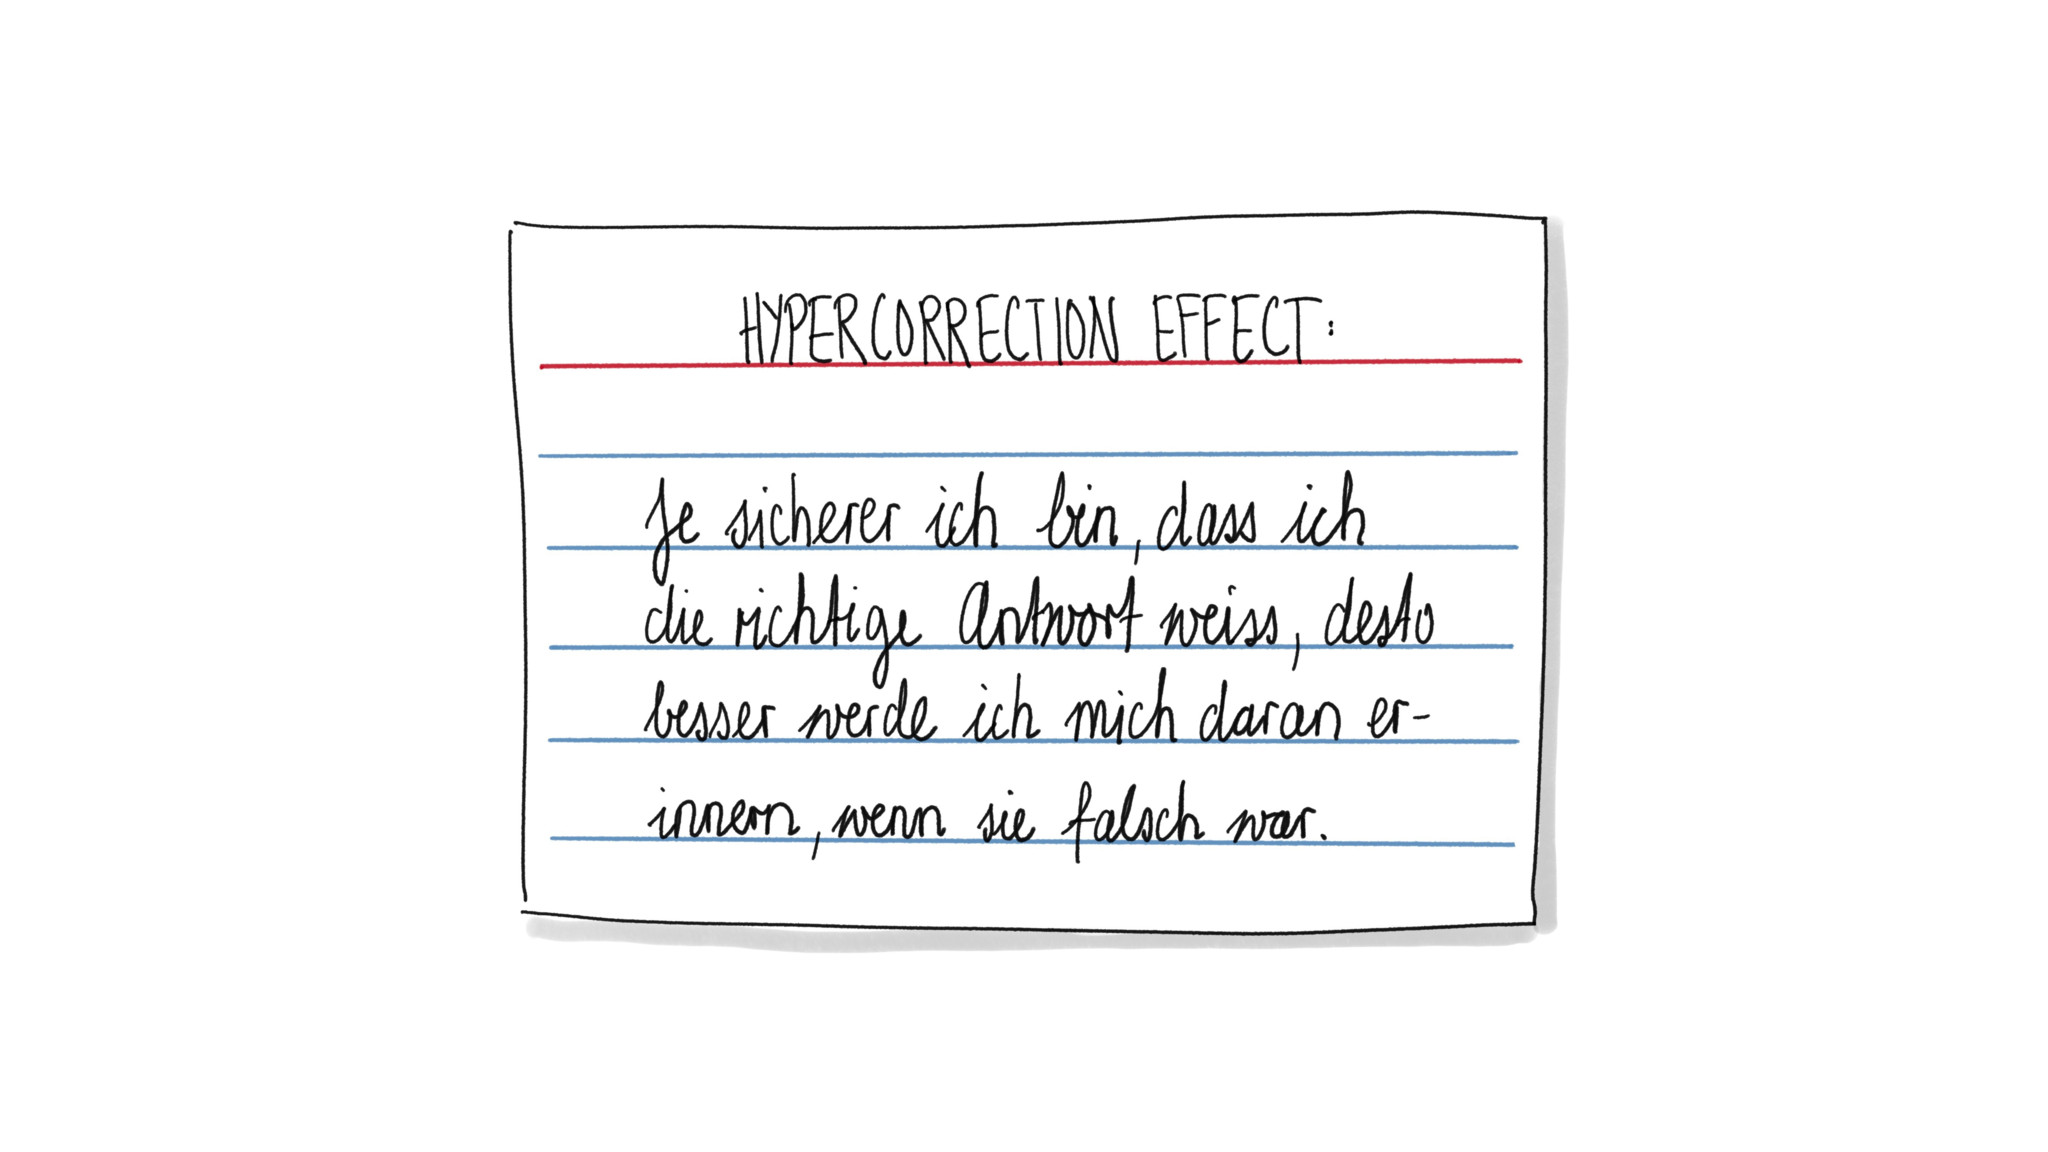 HYPERCORRECTION EFFECT:
Je sicherer ich bin, dass ich
die richtige Antwort weiss, desto
besser werde ich mich daran er-
innern, wenn sie falsch war.